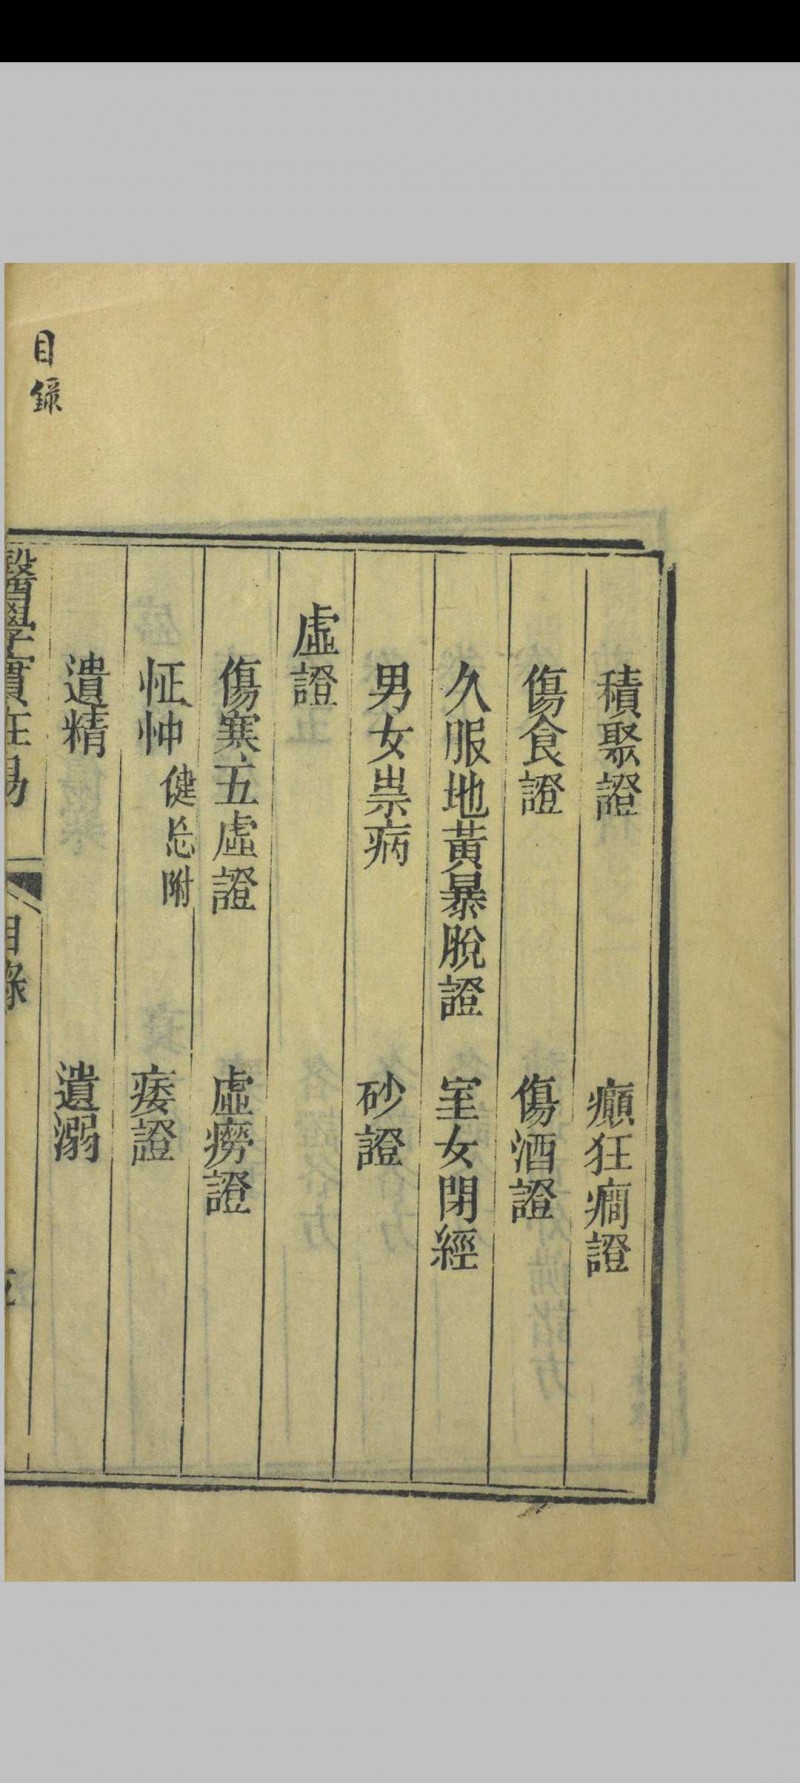 積聚證 癲狂癎證
傷食證 傷酒證
久服地黃暴脫證 室女閉經
男女祟病 砂證
虛證
傷寒五虛證 虛癆證
怔忡 健忘附 痿證
遺精 遺溺
醫學實在易 目錄
目錄